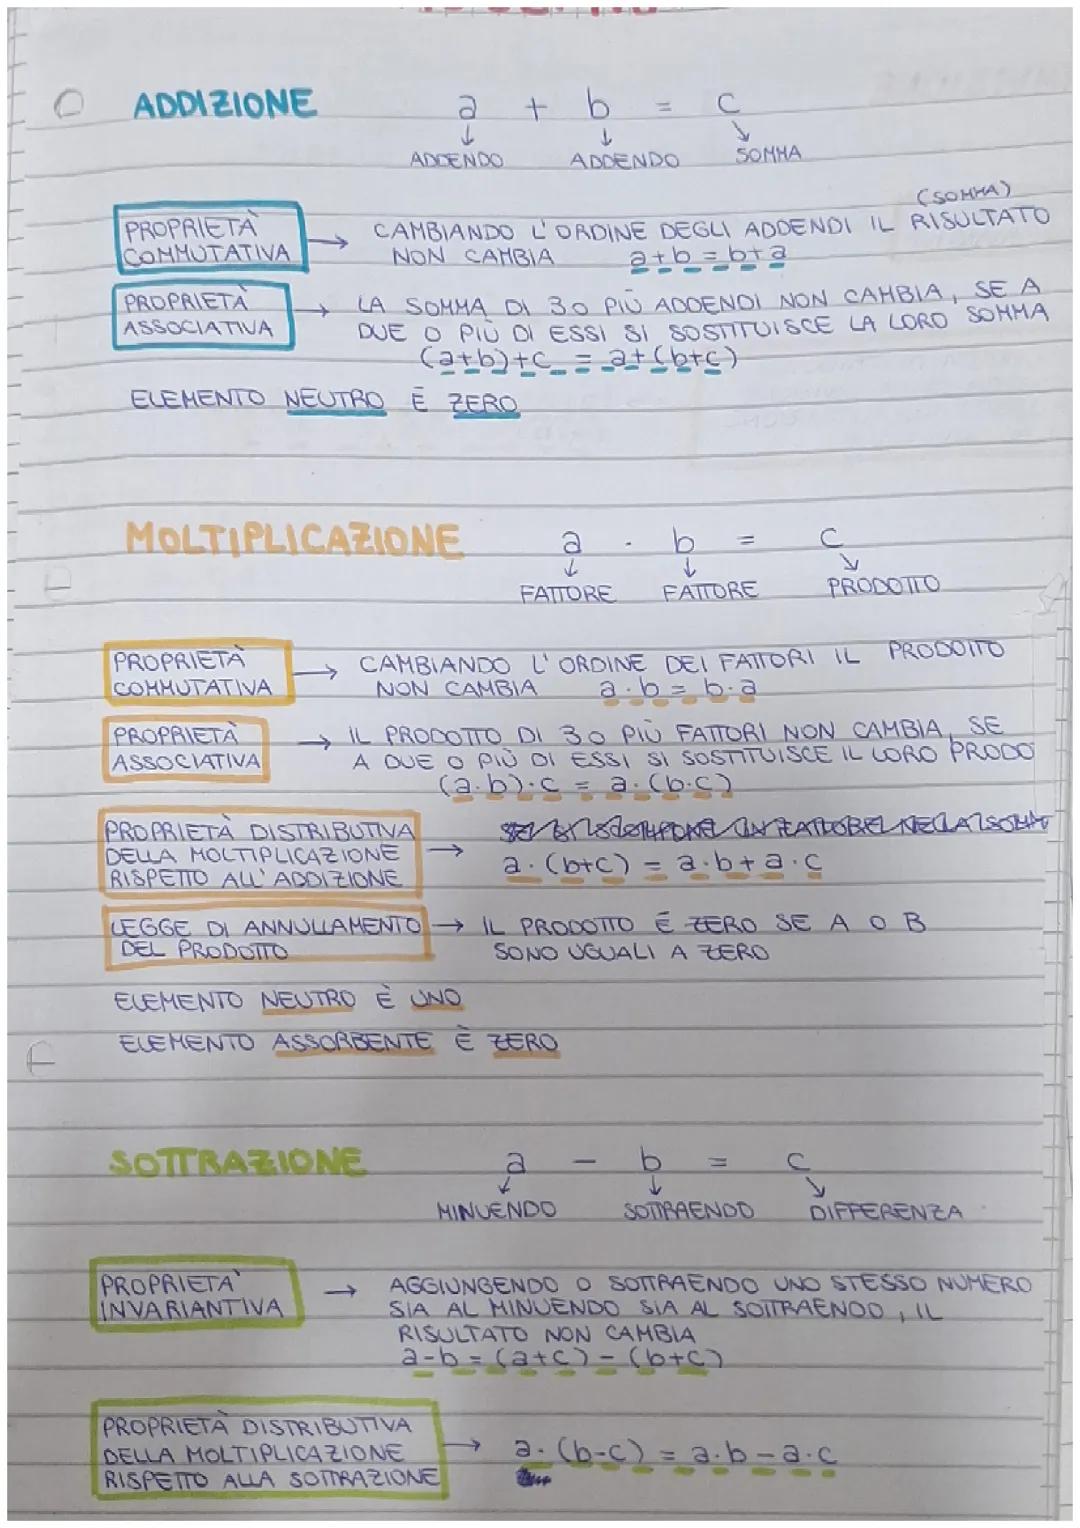 ADDIZIONE a + b = c
ADDENDO ADDENDO SOMMA
(SOMMA)
PROPRIETÀ COMMUTATIVA → CAMBIANDO L'ORDINE DEGLI ADDENDI IL RISULTATO
NON CAMBIA a+b=b+a
PROPRIETÀ ASSOCIATIVA → LA SOMMA DI 3 O PIÙ ADDENDI NON CAMBIA, SE A
DUE O PIÙ DI ESSI SI SOSTITUISCE LA LORO SOMMA
(a+b)+c = a+(b+c)
ELEMENTO NEUTRO È ZERO
MOLTIPLICAZIONE a · b = c
FATTORE FATTORE PRODOTTO
PROPRIETÀ COMMUTATIVA → CAMBIANDO L'ORDINE DEI FATTORI IL PRODOTTO
NON CAMBIA a·b=b·a
PROPRIETÀ ASSOCIATIVA → IL PRODOTTO DI 3 O PIÙ FATTORI NON CAMBIA, SE
A DUE O PIÙ DI ESSI SI SOSTITUISCE IL LORO PRODO
(a·b)·c = a·(b·c)
PROPRIETÀ DISTRIBUTIVA
DELLA MOLTIPLICAZIONE → a·(b+c) = a·b+a·c
RISPETTO ALL'ADDIZIONE
LEGGE DI ANNULLAMENTO → IL PRODOTTO É ZERO SE A O B
DEL PRODOTTO SONO UGUALI A ZERO
ELEMENTO NEUTRO È UNO
ELEMENTO ASSORBENTE È ZERO
SOTTRAZIONE a - b = c
MINUENDO SOTTRAENDO DIFFERENZA
PROPRIETA' → AGGIUNGENDO O SOTTRAENDO UNO STESSO NUMERO
INVARIANTIVA SIA AL MINUENDO SIA AL SOTTRAENDO, IL
RISULTATO NON CAMBIA
a-b=(a+c)-(b+c)
PROPRIETÀ DISTRIBUTIVA
DELLA MOLTIPLICAZIONE → a·(b-c) = a·b-a·c
RISPETTO ALLA SOTTRAZIONE